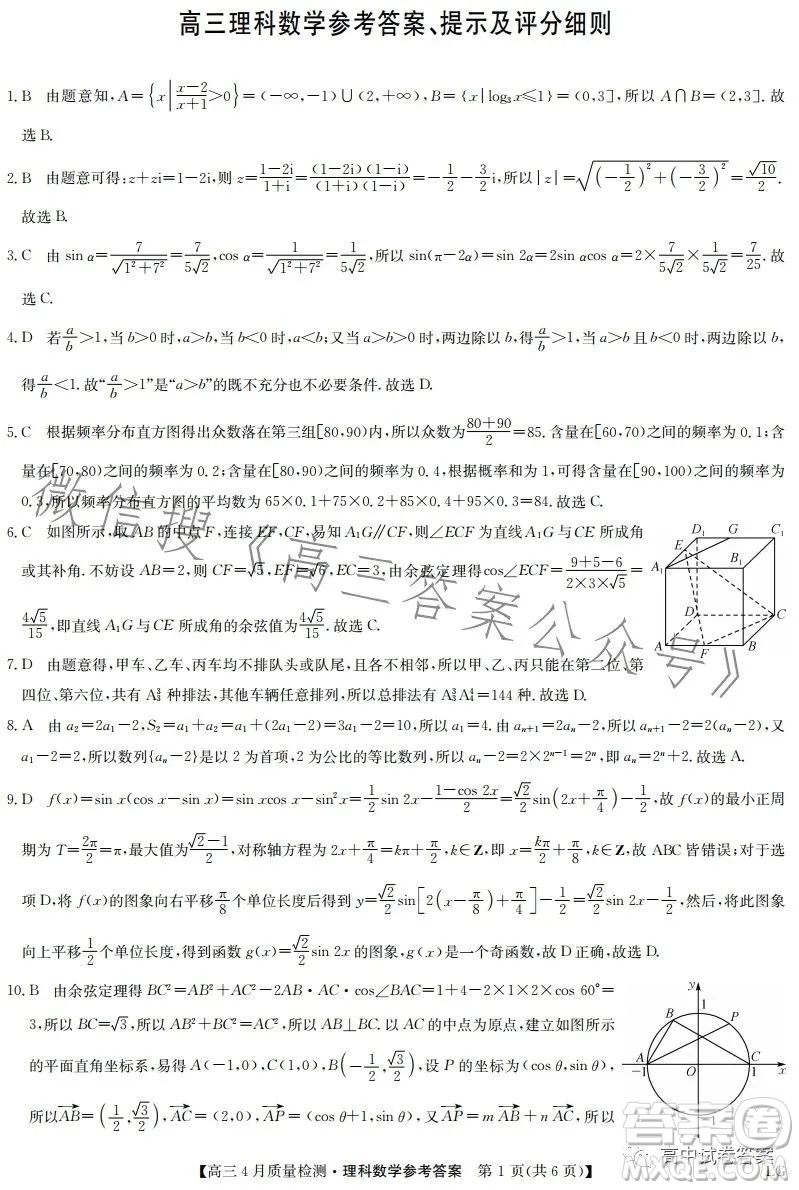 高三理科数学参考答案、提示及评分细则
1. B 由题意知,A={x|(x-2)/(x+1)>0}=(-∞,-1)∪(2,+∞),B={x|log₃x≤1}=(0,3],所以A∩B=(2,3].故
选B.
2. B 由题意可得:z+zi=1-2i,则z=(1-2i)/(1+i)=(1-2i)(1-i)/(1+i)(1-i)=-1/2-3/2i,所以|z|=√((-1/2)²+(-3/2)²)=√10/2.
故选B.
3. C 由sin α=7/√(1²+7²)=7/(5√2),cos α=1/√(1²+7²)=1/(5√2),所以sin(π-2α)=sin 2α=2sin αcos α=2×7/(5√2)×1/(5√2)=7/25.故
选C.
4. D 若a/b>1,当b>0时,a>b,当b<0时,a<b;又当a>b>0时,两边除以b,得a/b>1,当a>b且b<0时,两边除以b,
得a/b<1.故“a/b>1”是“a>b”的既不充分也不必要条件.故选D.
5. C 根据频率分布直方图得出众数落在第三组[80,90)内,所以众数为(80+90)/2=85.含量在[60,70)之间的频率为0.1;含
量在[70,80)之间的频率为0.2;含量在[80,90)之间的频率为0.4,根据概率和为1,可得含量在[90,100)之间的频率为
0.3,所以频率分布直方图的平均数为65×0.1+75×0.2+85×0.4+95×0.3=84.故选C.
6. C 如图所示,取AB的中点F,连接EF,CF,易知A₁G∥CF,则∠ECF为直线A₁G与CE所成角
或其补角.不妨设AB=2,则CF=√5,EF=√6,EC=3,由余弦定理得cos∠ECF=(9+5-6)/(2×3×√5)=
4√5/15,即直线A₁G与CE所成角的余弦值为4√5/15.故选C.
D₁ G C₁
E
A₁ B₁
D C
A F B
7. D 由题意得,甲车、乙车、丙车均不排队头或队尾,且各不相邻,所以甲、乙、丙只能在第二位、第
四位、第六位,共有A₃³种排法,其他车辆任意排列,所以总排法有A₃³A₄⁴=144种.故选D.
8. A 由a₂=2a₁-2,S₂=a₁+a₂=a₁+(2a₁-2)=3a₁-2=10,所以a₁=4.由aₙ₊₁=2aₙ-2,所以aₙ₊₁-2=2(aₙ-2),又
a₁-2=2,所以数列{aₙ-2}是以2为首项,2为公比的等比数列,所以aₙ-2=2×2ⁿ⁻¹=2ⁿ,即aₙ=2ⁿ+2.故选A.
9. D f(x)=sin x(cos x-sin x)=sin xcos x-sin²x=1/2sin 2x-(1-cos 2x)/2=√2/2sin(2x+π/4)-1/2,故f(x)的最小正周
期为T=2π/2=π,最大值为(√2-1)/2,对称轴方程为2x+π/4=kπ+π/2,k∈Z,即x=kπ/2+π/8,k∈Z,故ABC皆错误;对于选
项D,将f(x)的图象向右平移π/8个单位长度后得到y=√2/2sin[2(x-π/8)+π/4]-1/2=√2/2sin 2x-1/2,然后,将此图象
向上平移1/2个单位长度,得到函数g(x)=√2/2sin 2x的图象,g(x)是一个奇函数,故D正确,故选D.
10. B 由余弦定理得BC²=AB²+AC²-2AB·AC·cos∠BAC=1+4-2×1×2×cos 60°=
3,所以BC=√3,所以AB²+BC²=AC²,所以AB⊥BC.以AC的中点为原点,建立如图所示
的平面直角坐标系,易得A(-1,0),C(1,0),B(-1/2,√3/2),设P的坐标为(cos θ,sin θ),
所以AB→=(1/2,√3/2),AC→=(2,0),AP→=(cos θ+1,sin θ),又AP→=mAB→+nAC→,所以
y
1
B P
A C
-1 O 1 x
【高三4月质量检测·理科数学参考答案 第1页(共6页)】
微信搜《高三答案公众号》
高中试卷答案
答案圈
MXQE.COM